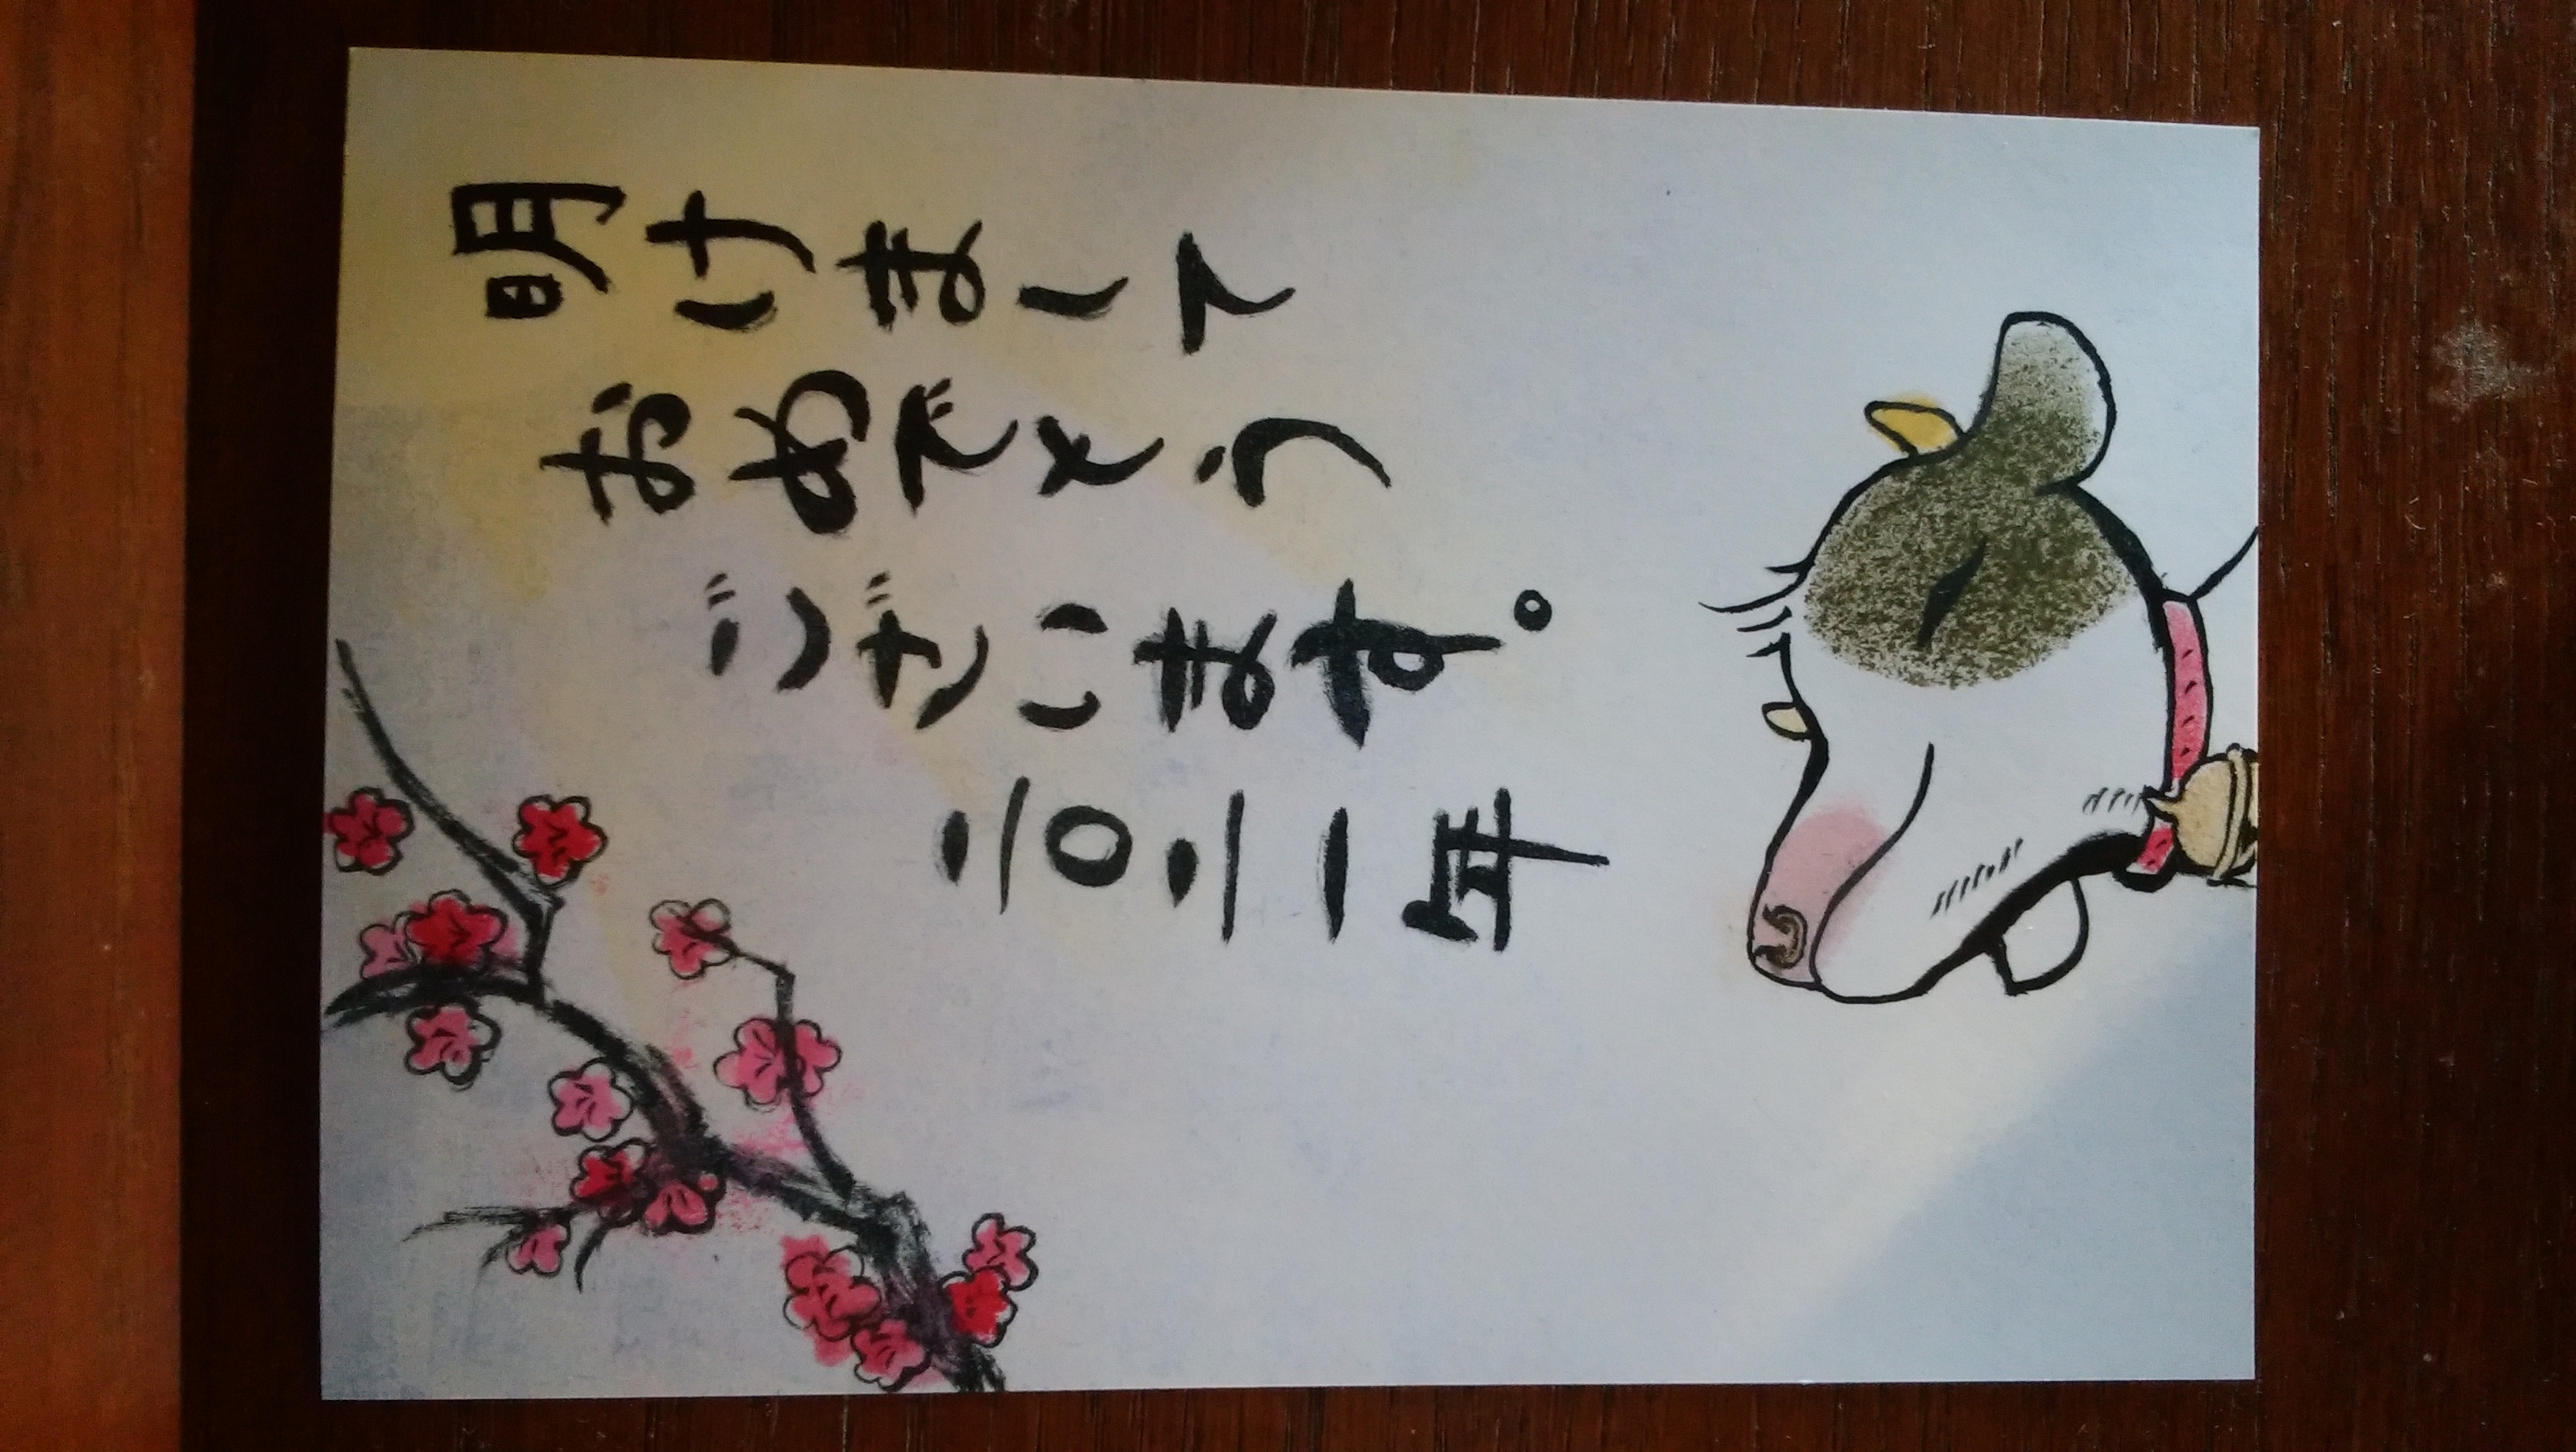 明けまして
おめでとう
ございます。
二〇二一年